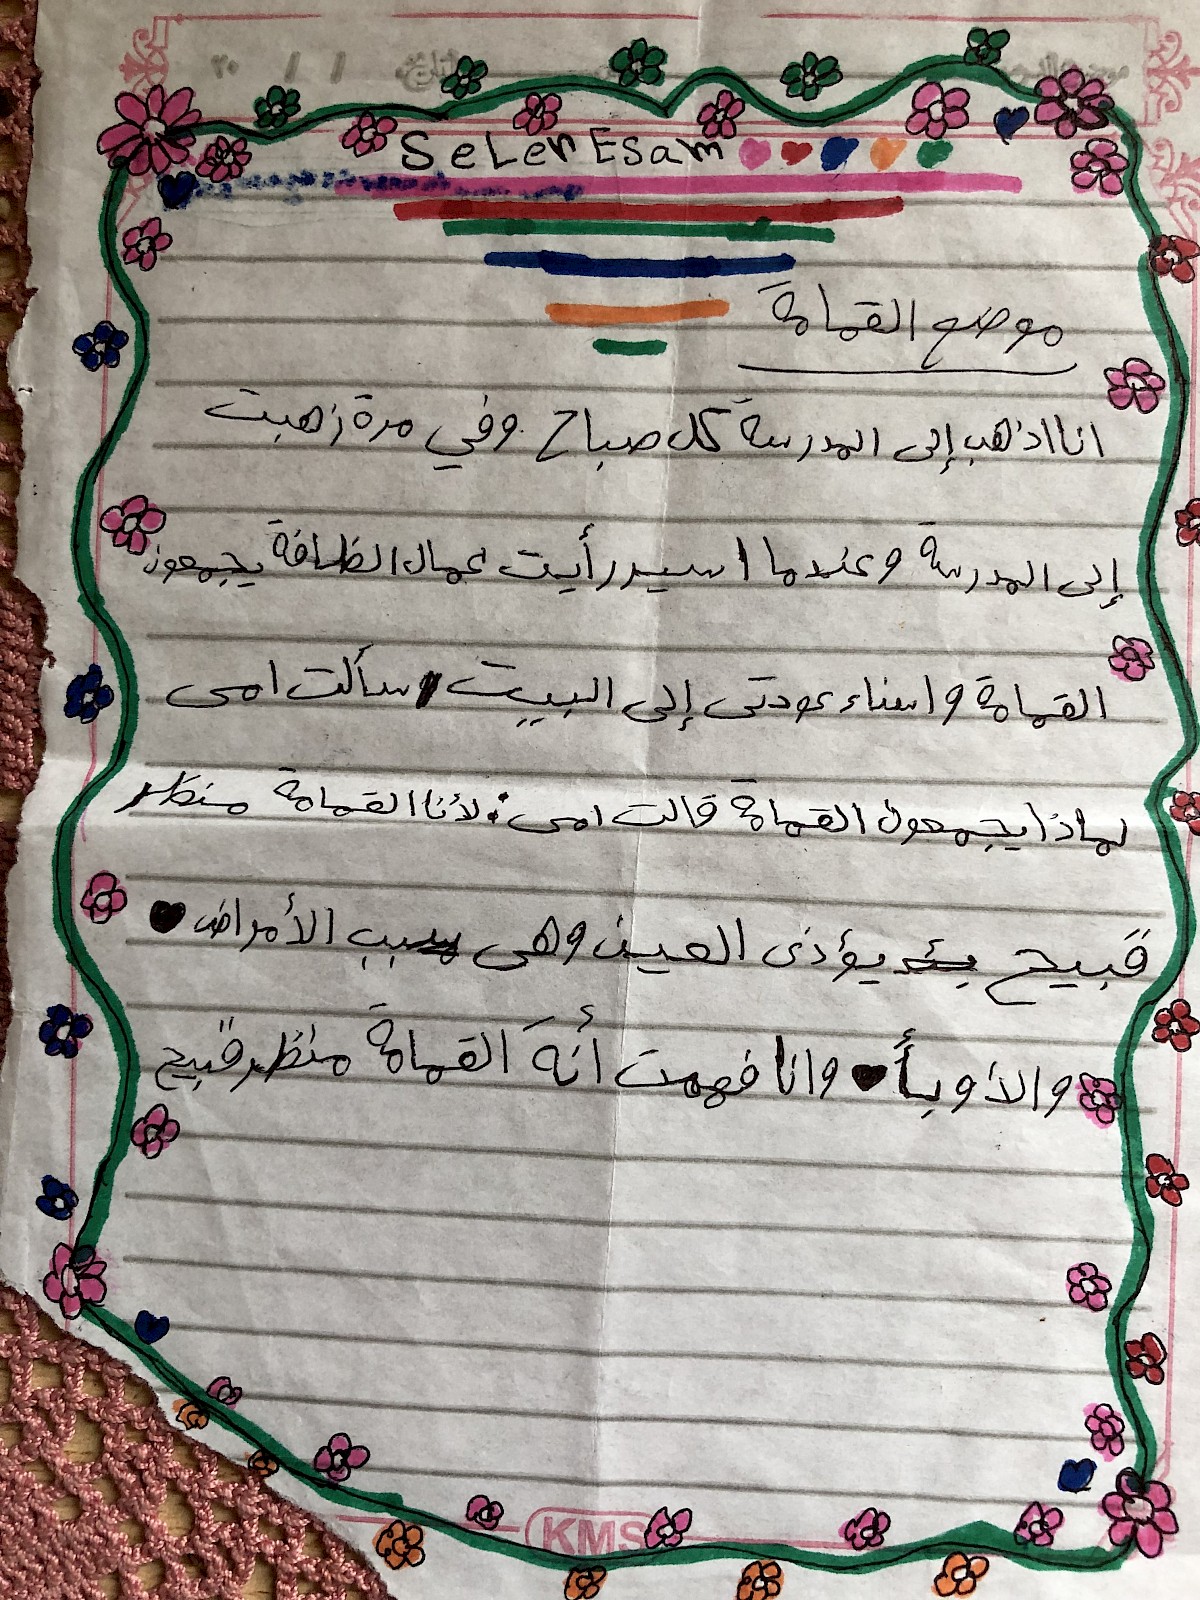 SeLer Esam
موضع القمامةَ
انا اذهب إلى المدرسةَ كل صباح وفي مرة زهبت
إلى المدرسة وعندما اسير رأيت عمال الظافةَ يجمعون
القمامة واسناء عودتى إلى البيت سألت امى
لماذا يجمعون القمامةَ قالت امى: لأنا القمامةَ منظر
قبيح يؤذى العين وهى سبب الأمراض
والأوبأ وانا فهمت أنهَ القمامةَ منظر قبيح
KMS